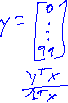 y = [0
⋮
99]
yᵀx
1ᵀx